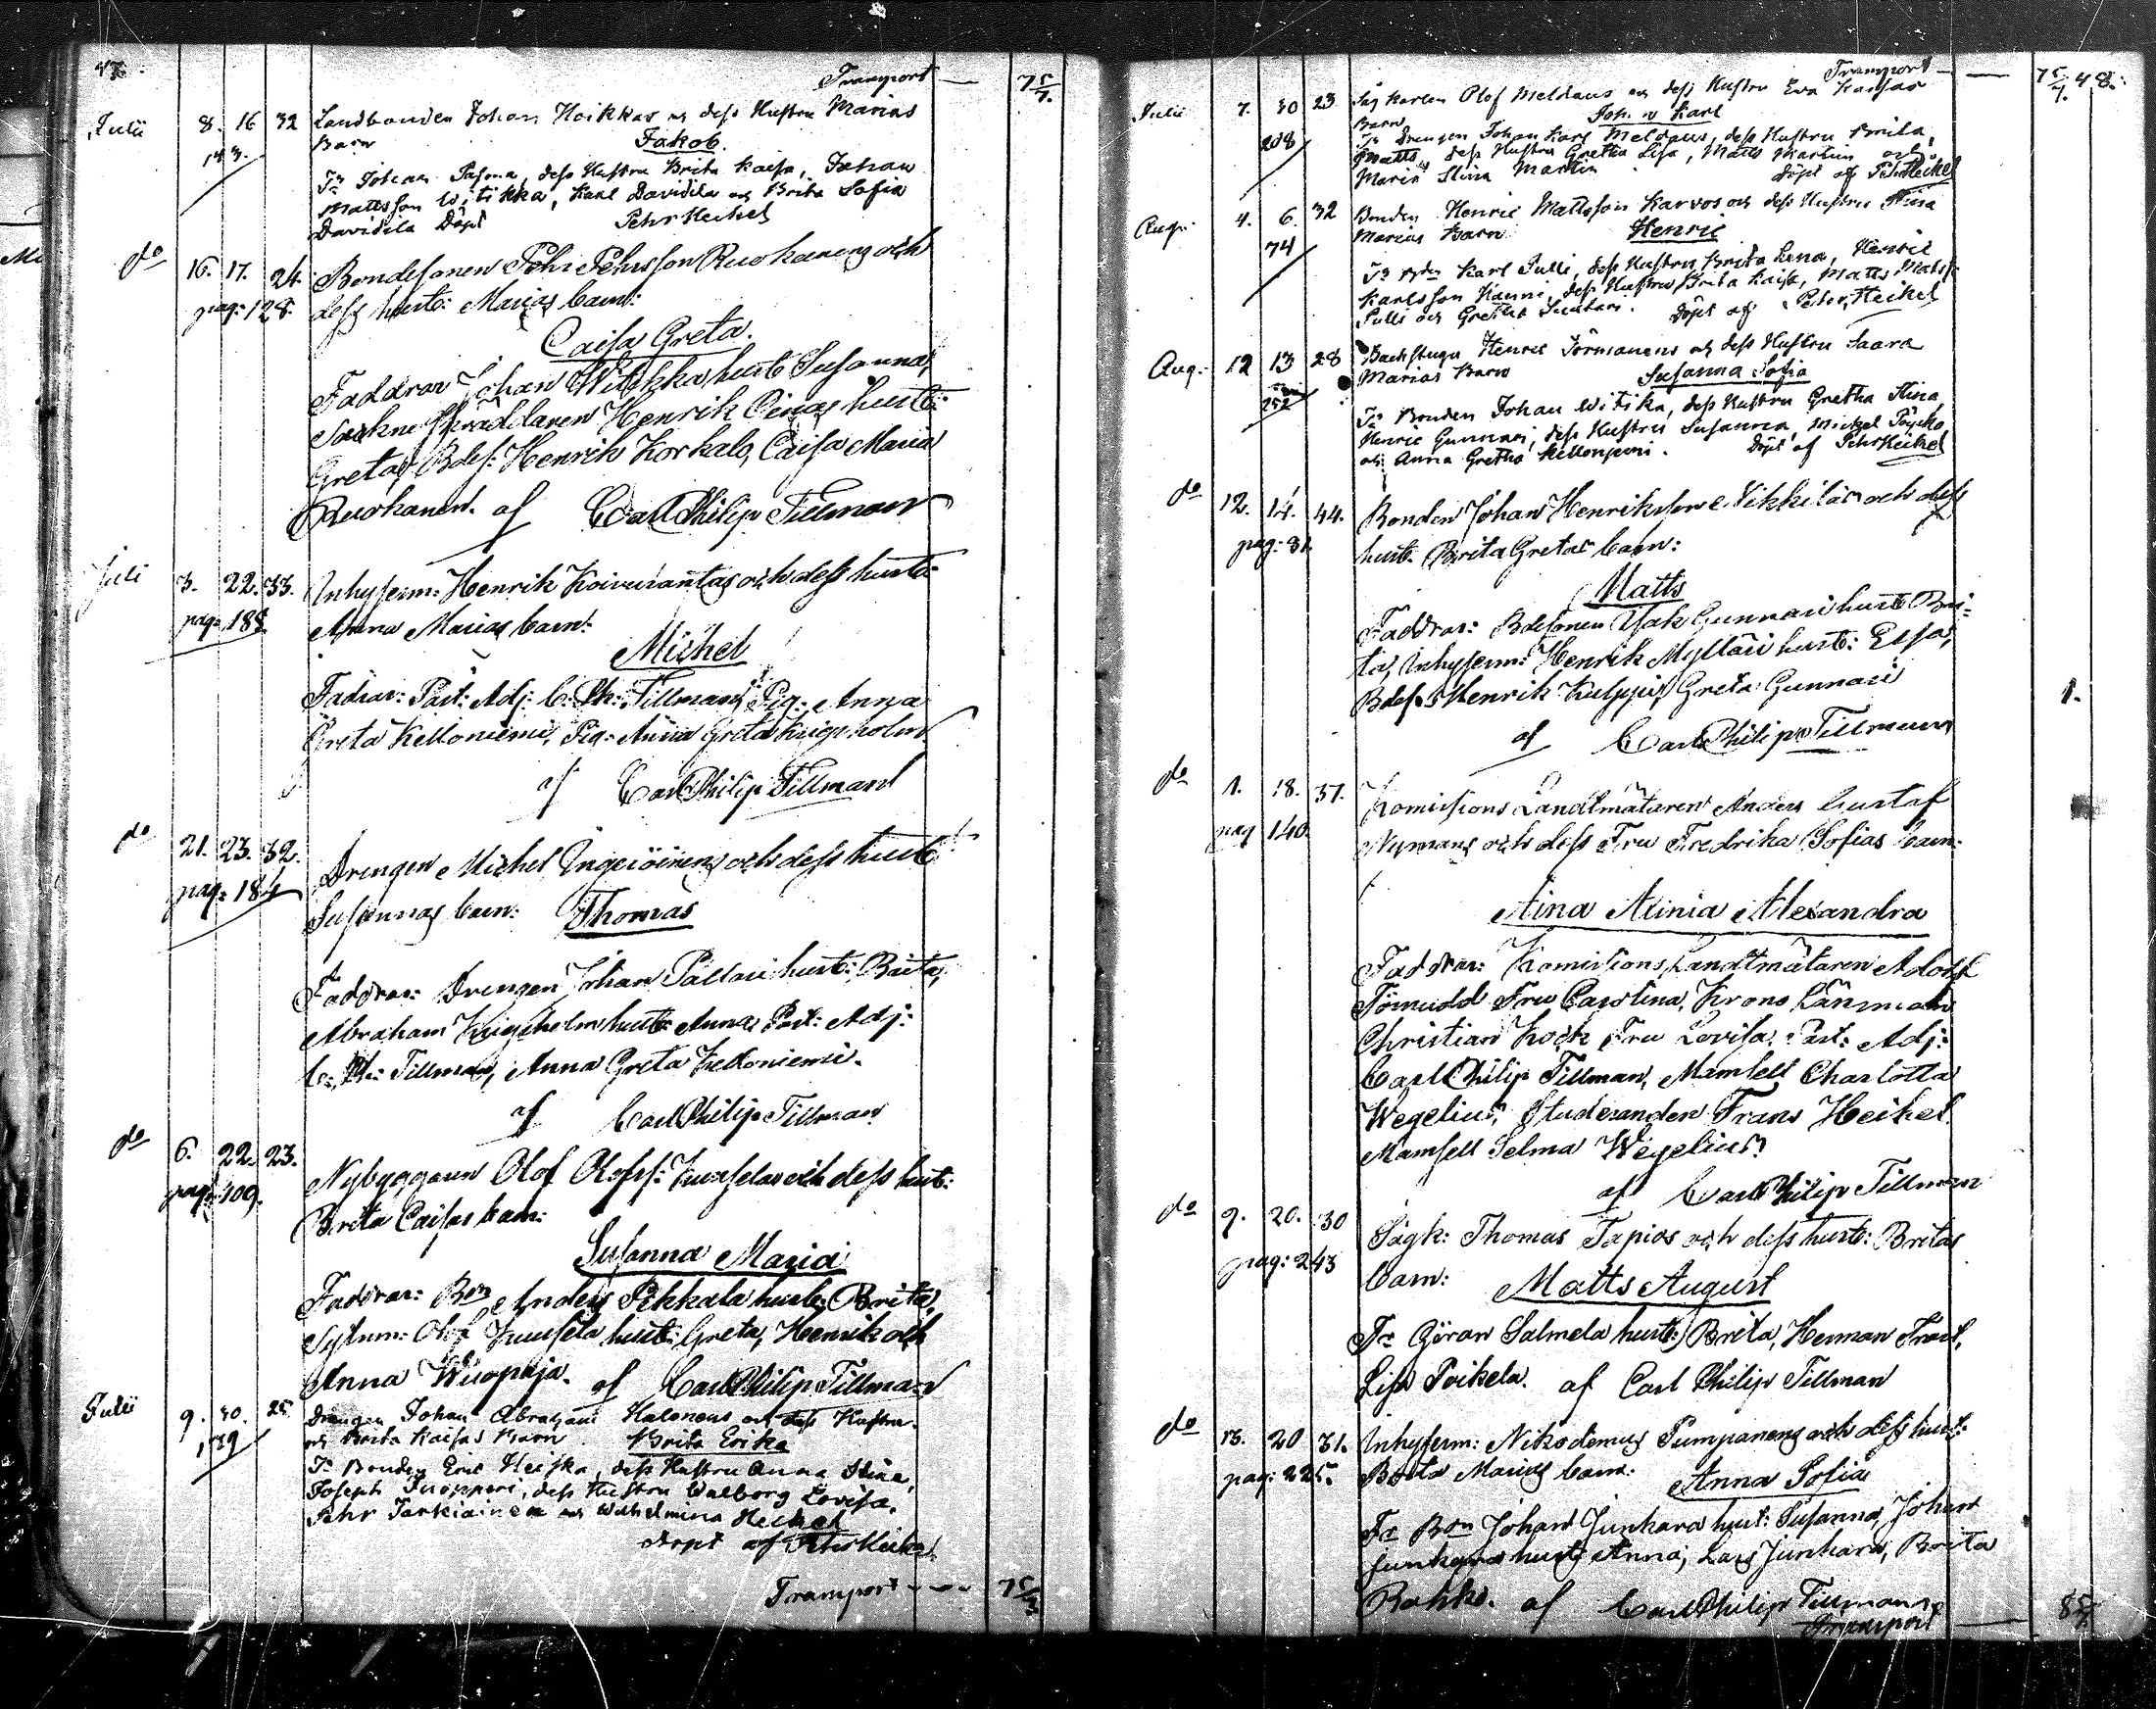 47.
Transport — 75/7.
Julii 8. 16 32 Landbonden Johan Hoikkas och dess Hustru Marias
143. Barn Jakob.
Fr Johan Pasma, dess Hustru Brita Kaisa, Johan
Mattsson Witikka, Karl Davidila och Brita Sofia
Davidila Döpt Pehr Heikel
do 16. 17. 24. Bondesonen Pehr Pehrsson Ruokanens och
pag: 128. dess hust: Marias barn:
Caisa Greta.
Faddrar Johan Witikka hust Susanna,
Sockne Skräddaren Henrik Oinas hust:
Greta, Bdes: Henrik Korkalo, Caisa Maria
Ruokanen. af Carl Philip Tillman
Juli 3. 22. 33. Inhysem: Henrik Koivurantas och dess hust:
pag: 188 Anna Marias barn:
Michel
Fadrar: Past: Adj: C. Ph: Tillman, Pig: Anna
Greta Kelloniemi, Pig: Anna Greta
af Carl Philip Tillman
do 21. 23. 32. Drengen Michel och dess hust:
pag: 184 Susannas barn: Thomas
Faddrar: Drengen Johan Pallari hust: Brita,
Abraham hust: Anna, Past: Adj:
C: Ph: Tillman, Anna Greta Kelloniemi.
af Carl Philip Tillman
do 6. 22. 23. Nybyggaren Olof Olofss: och dess hust:
pag: 109. Brita Caisas barn:
Susanna Maria
Faddrar: Bon Anders Pekkala hust: Brita,
Olof hust: Greta, Henrik och
Anna Wuopaja. af Carl Philip Tillman
Julii 9. 30. 25 Drengen Johan Abraham Halonens och dess Hustru
139 och Brita Kaisas Barn Brita Erika
Fr Bonden Eric dess Hustru Anna Stina,
Joseph dess Hustru Walborg Lovisa,
Pehr Tarkiainen och Wilhelmina Heikel
döpt af Pehr Heikel
Transport - - - 75/7.
Transport — 75/7. 48.
Julii 7. 30 23 Såg Karlen Olof Meldaus och dess Hustru Eva Kaisas
208 Barn Johan Karl
Fr Drengen Johan Karl Meldaus, dess Hustru Brita,
Matts dess Hustru Gretha Lisa, Matts Martin och
Maria Stina Martin döpt af Pehr Heikel
Aug: 4. 6. 32 Bonden Henric Mattsson Karvos och dess Hustru Stina
74 Marias Barn Henric
Fr Bdn Karl Julli, dess Hustru Brita Lena, Henric
Karlsson dess Hustru Brita Kaisa, Matts
Julli och Gretha döpt af Peter Heikel
Aug: 12 13 28 Backstugu Henric Törmänens och dess Hustru Saara
252 Marias Barn Susanna Sofia
Fr Bonden Johan Witika, dess Hustru Gretha Stina,
Henric Gunnari, dess Hustru Susanna, Michel Pöyckö,
och Anna Gretha Kelloniemi. Döpt af Pehr Heikel
do 12. 14. 44. Bonden Johan Henriksson Nikkiläs och dess
pag: 31. hust: Brita Gretas barn:
Matts
Faddrar: Bdesonen Isak Gunnari hust: Bri-
ta, Inhysem: Henrik Mylläri hust: Elsa,
Bdes: Henrik Kulppi, Greta Gunnari
1.
af Carl Philip Tillman
do 1. 18. 37. Komissions Landtmätaren Anders Gustaf
pag 140. Nymans och dess Fru Fredrika Sofias barn:
Aina Alinia Alexandra
Faddrar: Komissions Landtmätaren Adolf
Törnudd Fru Carolina, Krono Länsman
Christian Kock Fru Lovisa, Past: Adj:
Carl Philip Tillman, Mamsell Charlotta
Wegelius, Studeranden Frans Heikel.
Mamsell Selma Wegelius
af Carl Philip Tillman
do 9. 20. 30 Sågk: Thomas Tapios och dess hust: Britas
pag: 243 barn: Matts August
Fr Göran Salmela hust: Brita, Herman Frant,
Lisa Poikela. af Carl Philip Tillman
do 13. 20 31. Inhysem: Nikodemus Pumpanens och dess hust:
pag: 225. Brita Marias barn: Anna Sofia
Fr Bon Johan Junkara hust: Susanna, Johan
Junkara hust: Anna, Lars Junkara, Brita
Rahko. af Carl Philip Tillman
Transport — 85/7.